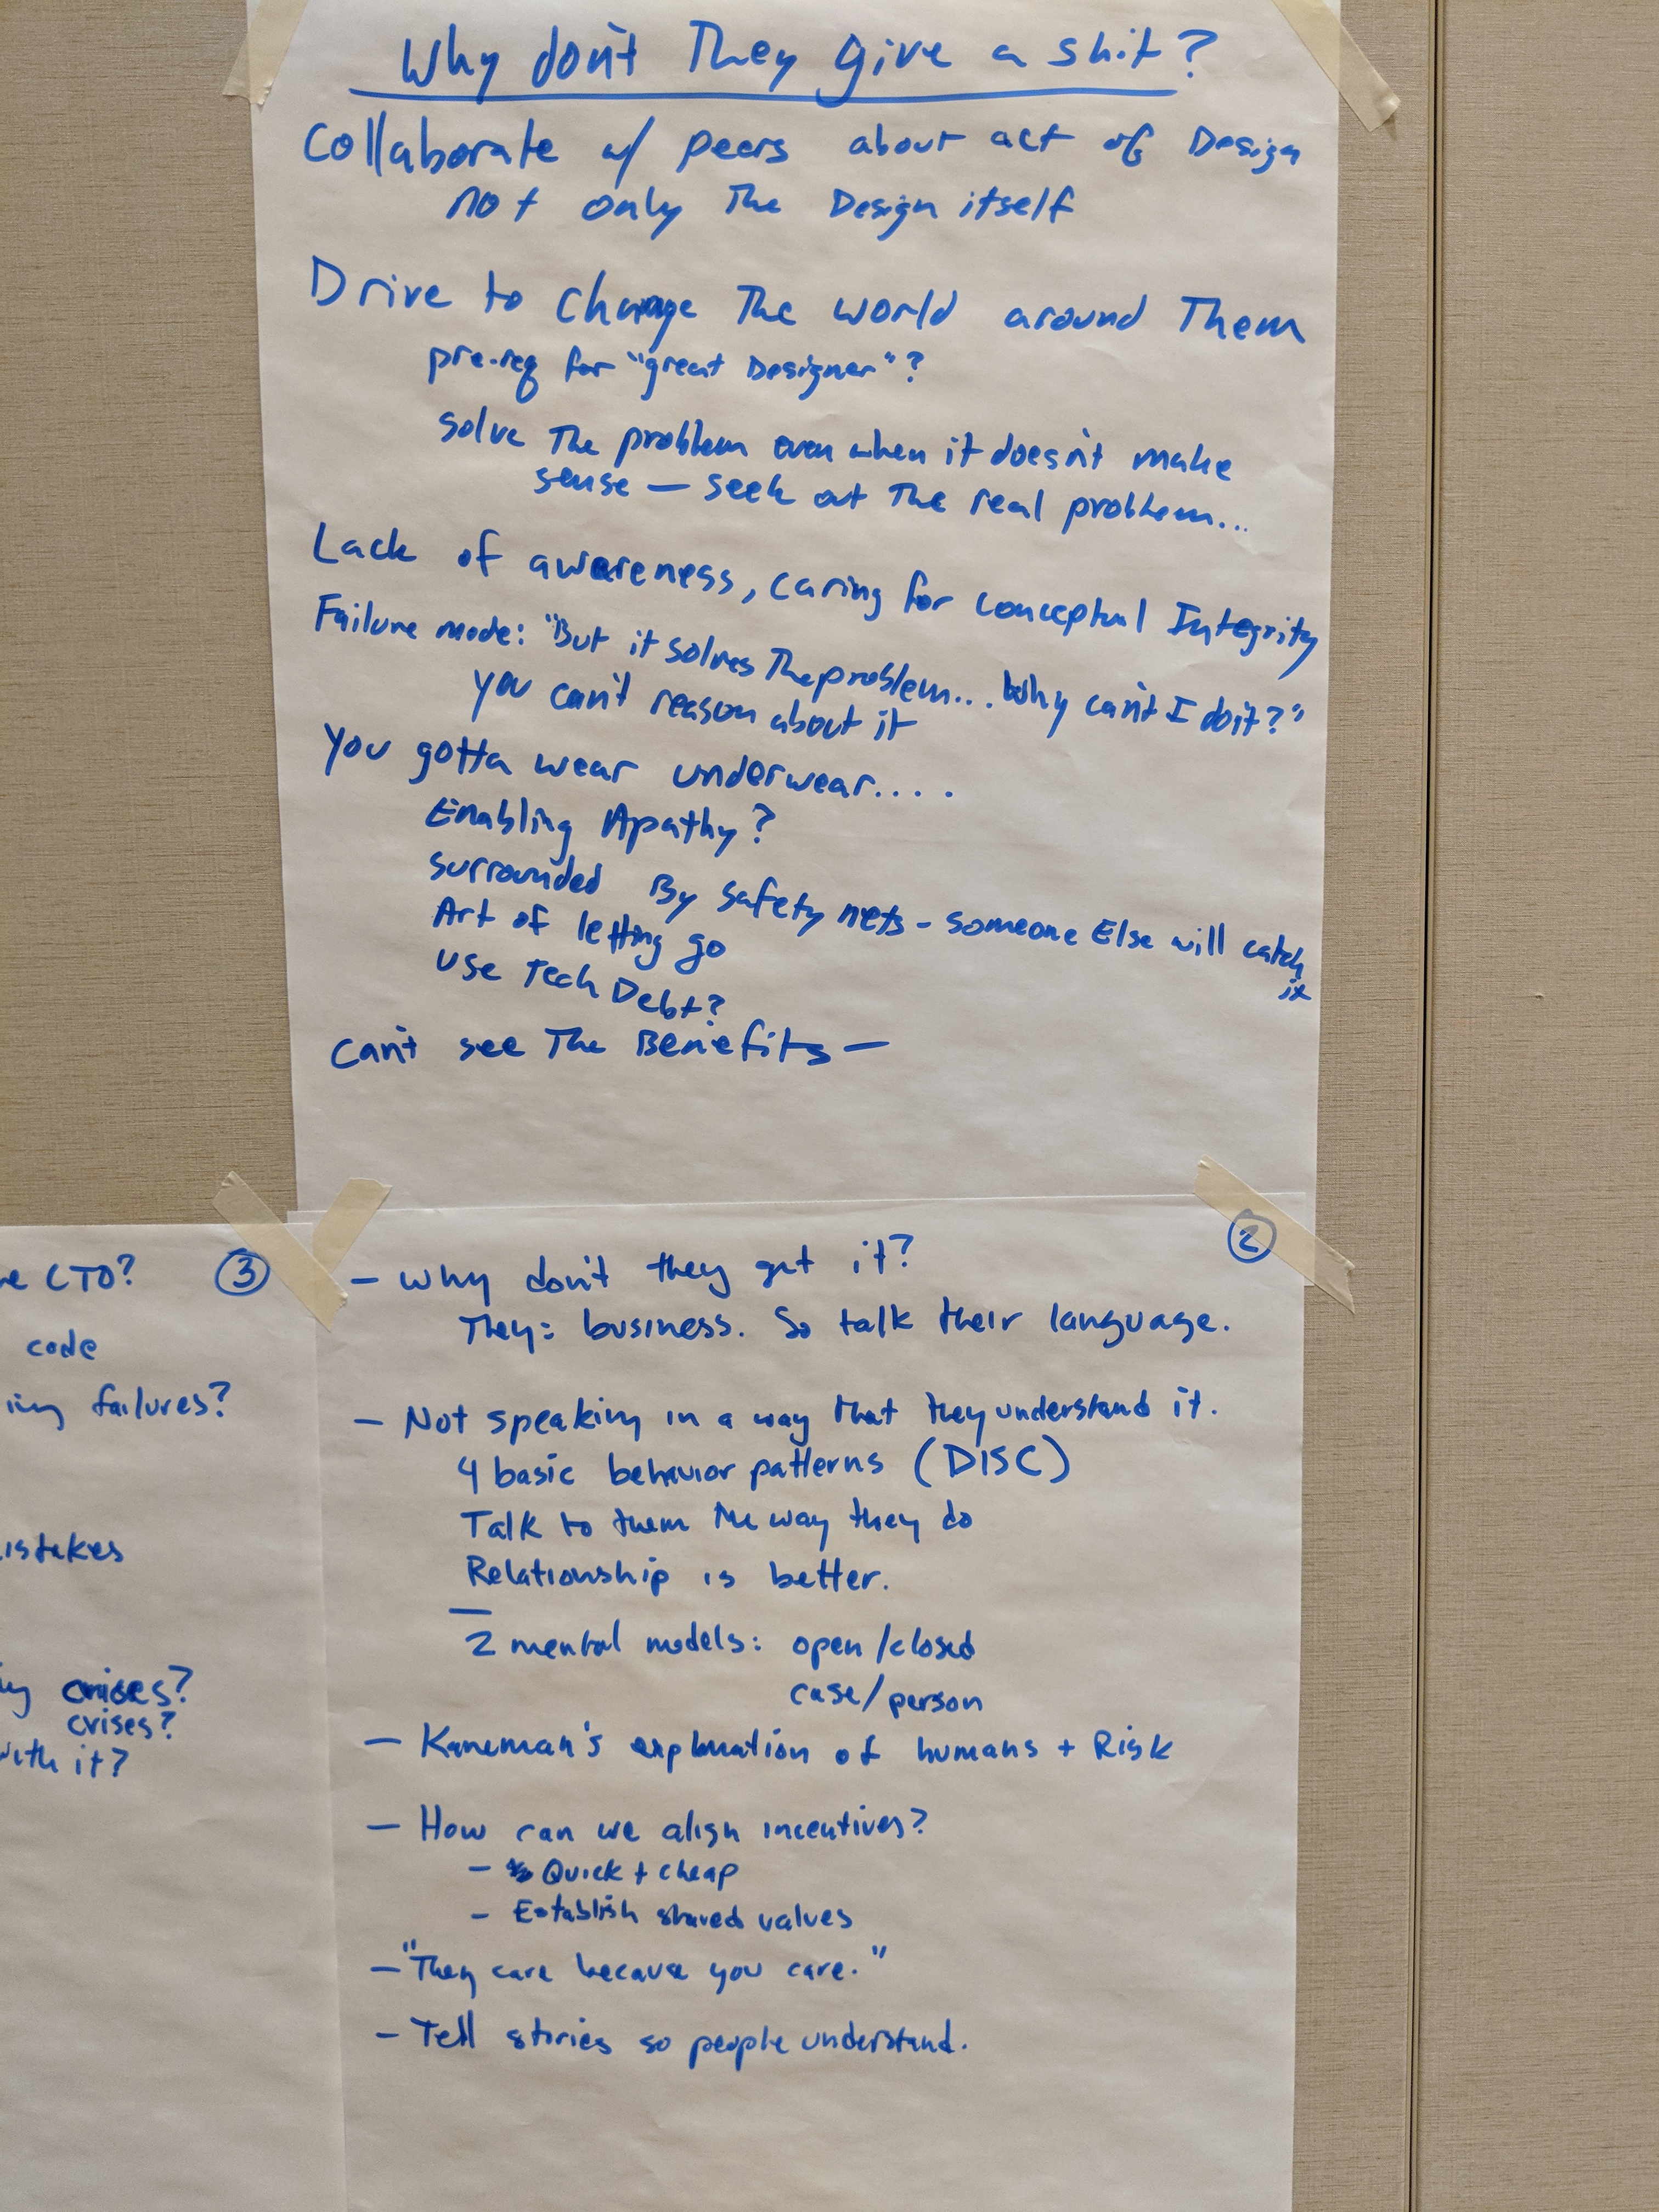 Why don't They give a shit?
Collaborate w/ peers about act of Design
not only The Design itself
Drive to change The world around Them
pre-req for "great Designer"?
solve The problem even when it doesn't make
sense — seek out The real problem...
Lack of awareness, caring for conceptual Integrity
Failure mode: "But it solves The problem... Why can't I do it?"
you can't reason about it
You gotta wear underwear....
Enabling Apathy?
surrounded By safety nets - someone Else will catch
it
Art of letting go
use Tech Debt?
can't see The Benefits —
②
- Why don't they get it?
They= business. So talk their language.
- Not speaking in a way that they understand it.
4 basic behavior patterns (DISC)
Talk to them the way they do
Relationship is better.
—
2 mental models: open/closed
case/person
- Kaneman's explanation of humans + Risk
- How can we align incentives?
- Quick + cheap
- Establish shared values
- "They care because you care."
- Tell stories so people understand.
③
CTO?
code
failures?
crises?
with it?